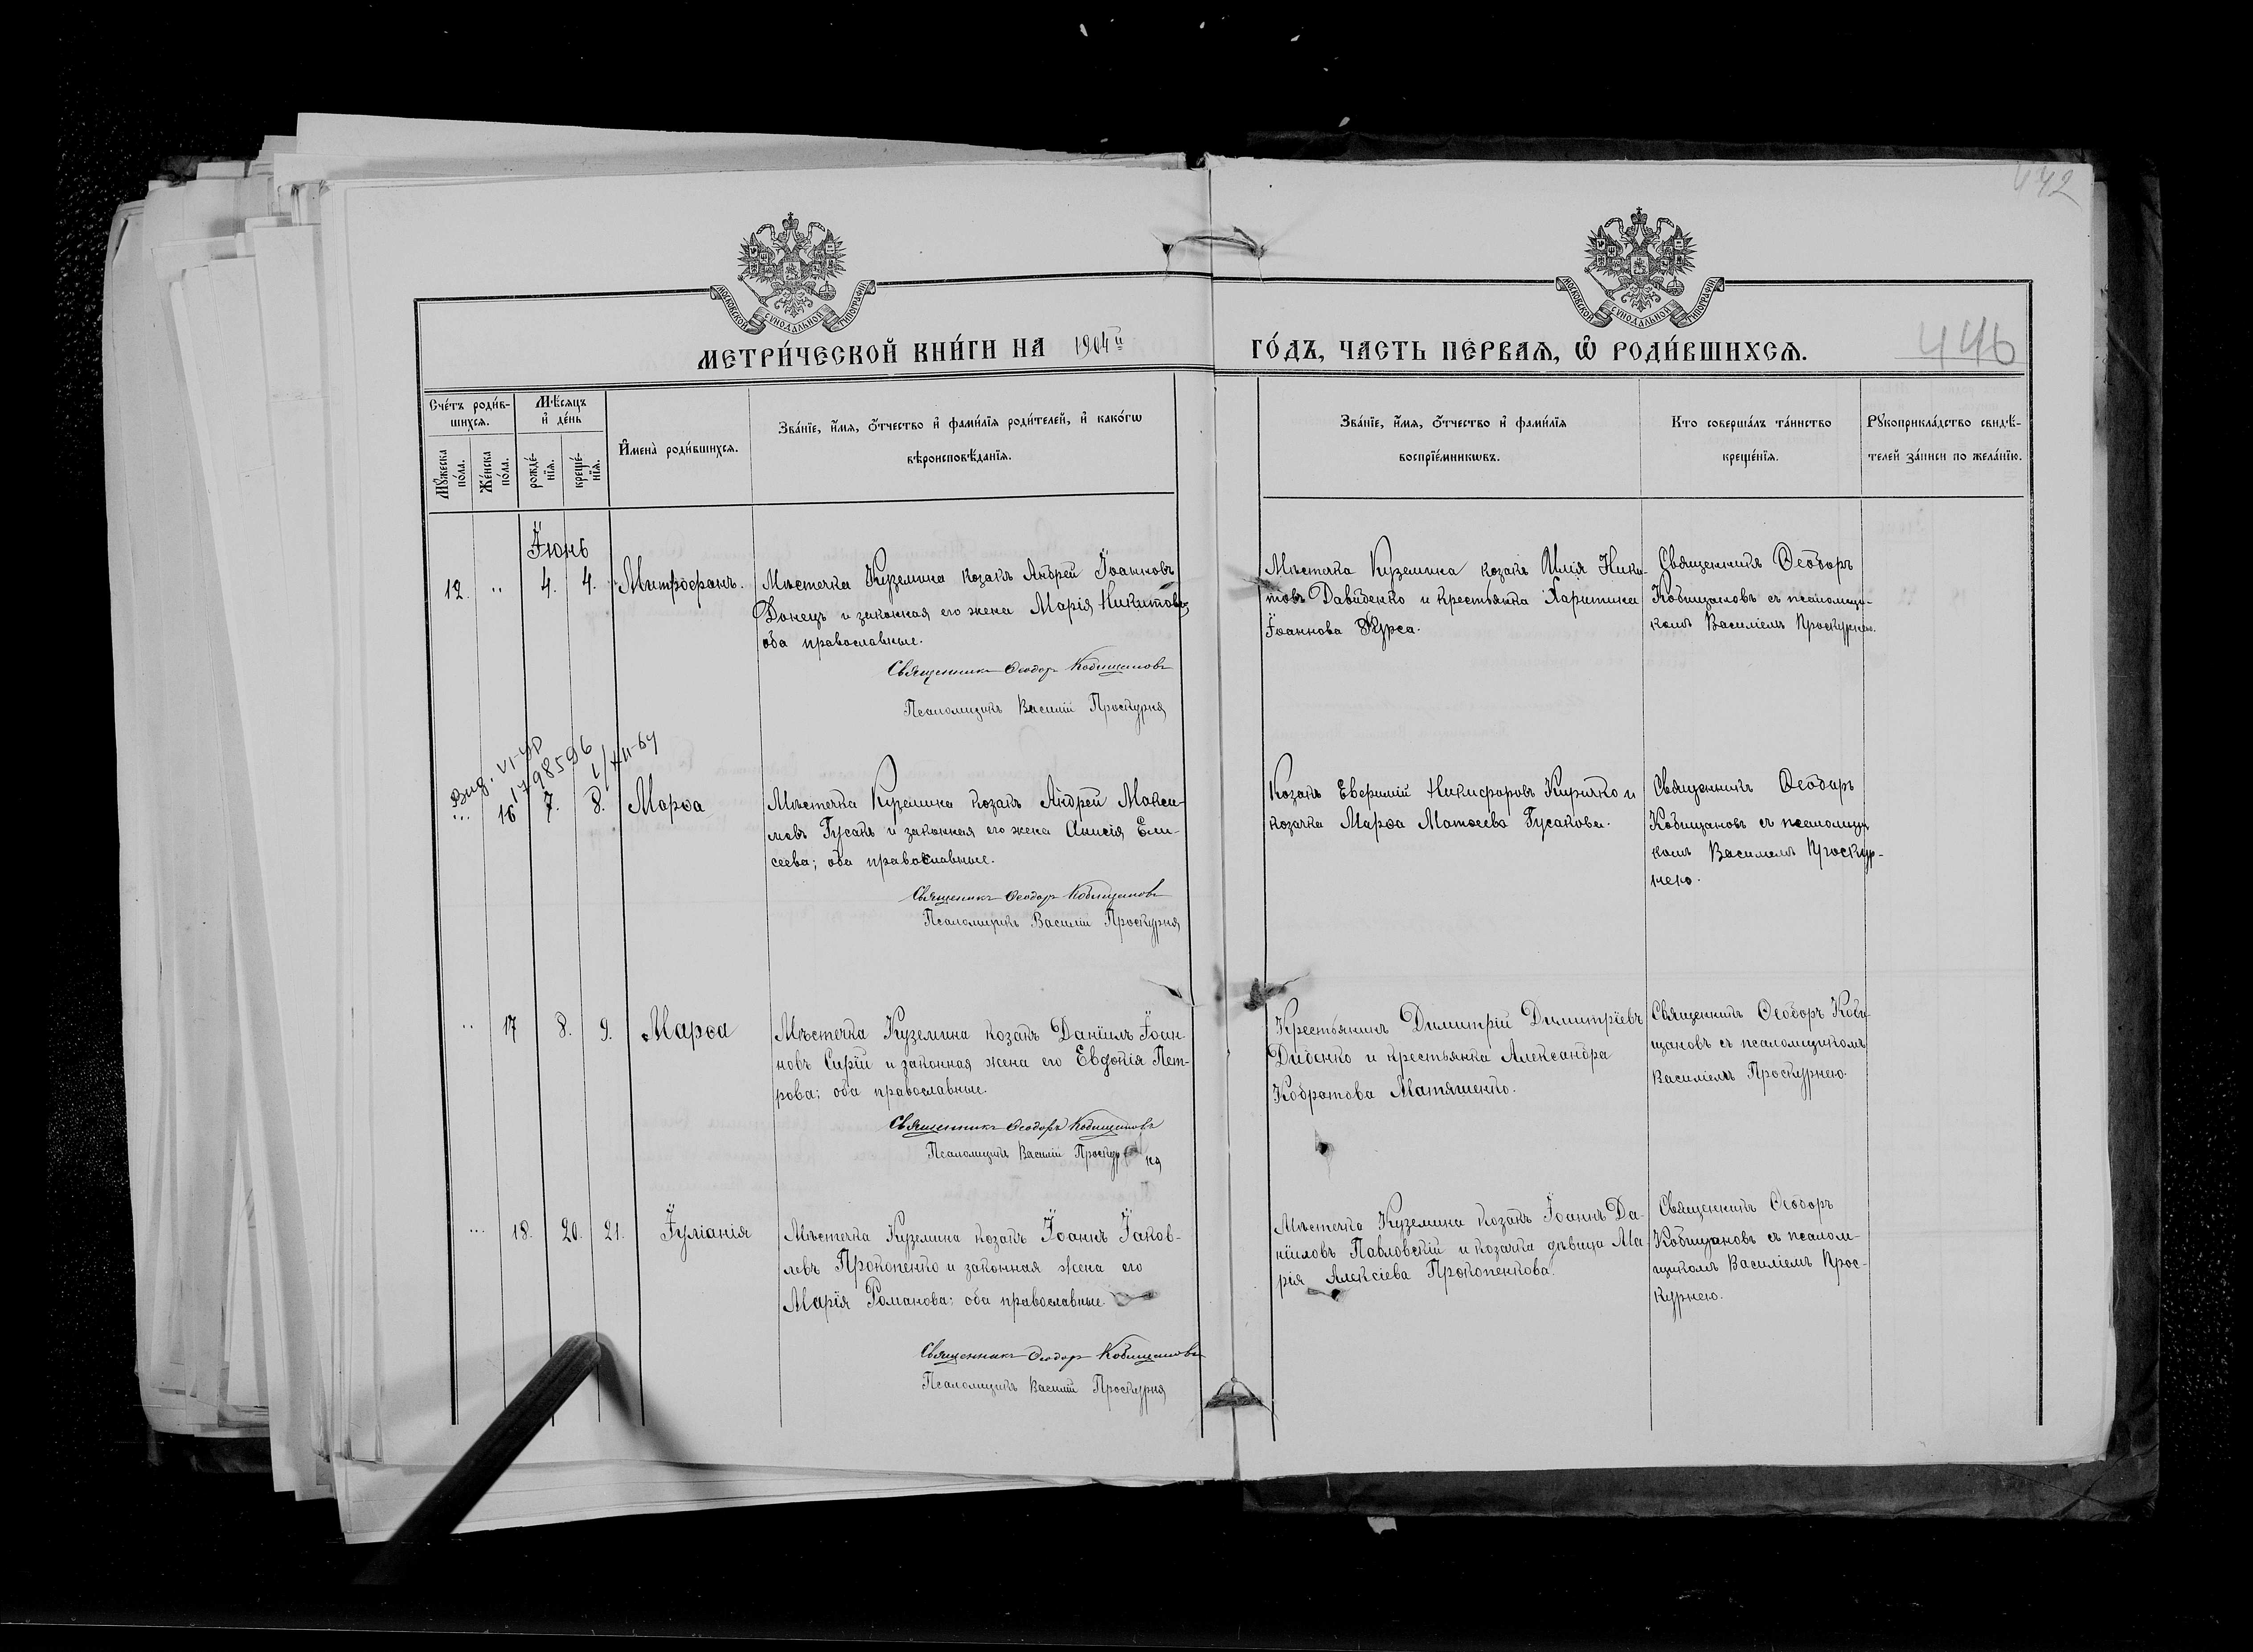 442
МОСКОВСКОЙ СУНОДАЛЬНОЙ ТИПОГРАФІИ
МОСКОВСКОЙ СУНОДАЛЬНОЙ ТИПОГРАФІИ
МЕТРИ́ЧЕСКОЙ КНИ́ГИ НА 1904й ГО́ДЪ, ЧАСТЬ ПЕ́РВАѦ, Ѡ РОДИ́ВШИХСѦ.
446
Сче́тъ роди́в-
шихсѧ.
Мꙋ́жеска
по́ла.
Же́нска
по́ла.
Мѣ́сѧцъ
и де́нь
рожде́-
нїѧ.
креще́-
нїѧ.
Имена̀ роди́вшихсѧ.
Зва́нїе, и́мѧ, о́тчество и фами́лїѧ роди́телей, и како́гѡ
вѣроисповѣ́данїѧ.
Зва́нїе, и́мѧ, о́тчество и фами́лїѧ
воспрїе́мникѡвъ.
Кто соверша́лъ та́инство
креще́нїѧ.
Рꙋкоприкла́дство свидѣ́-
телей за́писи по жела́нїю.
Їюнь
12. " 4. 4. Митрофанъ.
Мѣстечка Куземина козакъ Андрей Їоанновъ
Донецъ и законная его жена Марія Никитова,
оба православные.
Священникъ Ѳеодоръ Кобищановъ
Псаломщикъ Василій Проскурня
Мѣстечка Куземина козакъ Илія Ники-
товъ Давиденко и крестьянка Харитина
Їоаннова Курса.
Священникъ Ѳеодоръ
Кобищановъ съ псаломщи-
комъ Василіемъ Проскурнею.
Вид. VI-УР
1798596
1/XII-64
" 16 7. 8. Марѳа
Мѣстечка Куземина козакъ Андрей Макси-
мовъ Гусакъ и законная его жена Анисія Ели-
сеева; оба православные.
Священникъ Ѳеодоръ Кобищановъ
Псаломщикъ Василій Проскурня
Козакъ Евѳимій Никифоровъ Кирячко и
козачка Марѳа Матѳеева Гусакова.
Священникъ Ѳеодоръ
Кобищановъ съ псаломщи
комъ Василіемъ Проскур-
нею.
" 17 8. 9. Марѳа
Мѣстечка Куземина козакъ Данїилъ Їоан-
новъ Сирїй и законная жена его Евдокія Пет-
рова; оба православные.
Священникъ Ѳеодоръ Кобищановъ
Псаломщикъ Василій Проскурня
Крестьянинъ Димитрій Димитріевъ
Диденко и крестьянка Александра
Кодратова Матяшенко.
Священникъ Ѳеодоръ Коби-
щановъ съ псаломщикомъ
Василіемъ Проскурнею.
" 18. 20. 21. Їуліанія
Мѣстечка Куземина козакъ Їоаннъ Їаков-
левъ Прокопенко и законная жена его
Марїя Романова; оба православные.
Священникъ Ѳеодоръ Кобищановъ
Псаломщикъ Василій Проскурня
Мѣстечка Куземина козакъ Їоаннъ Да-
нїиловъ Павловскій и козачка дѣвица Ма
рія Алексіева Прокопенкова.
Священникъ Ѳеодоръ
Кобищановъ съ псалом-
щикомъ Василіемъ Прос-
курнею.